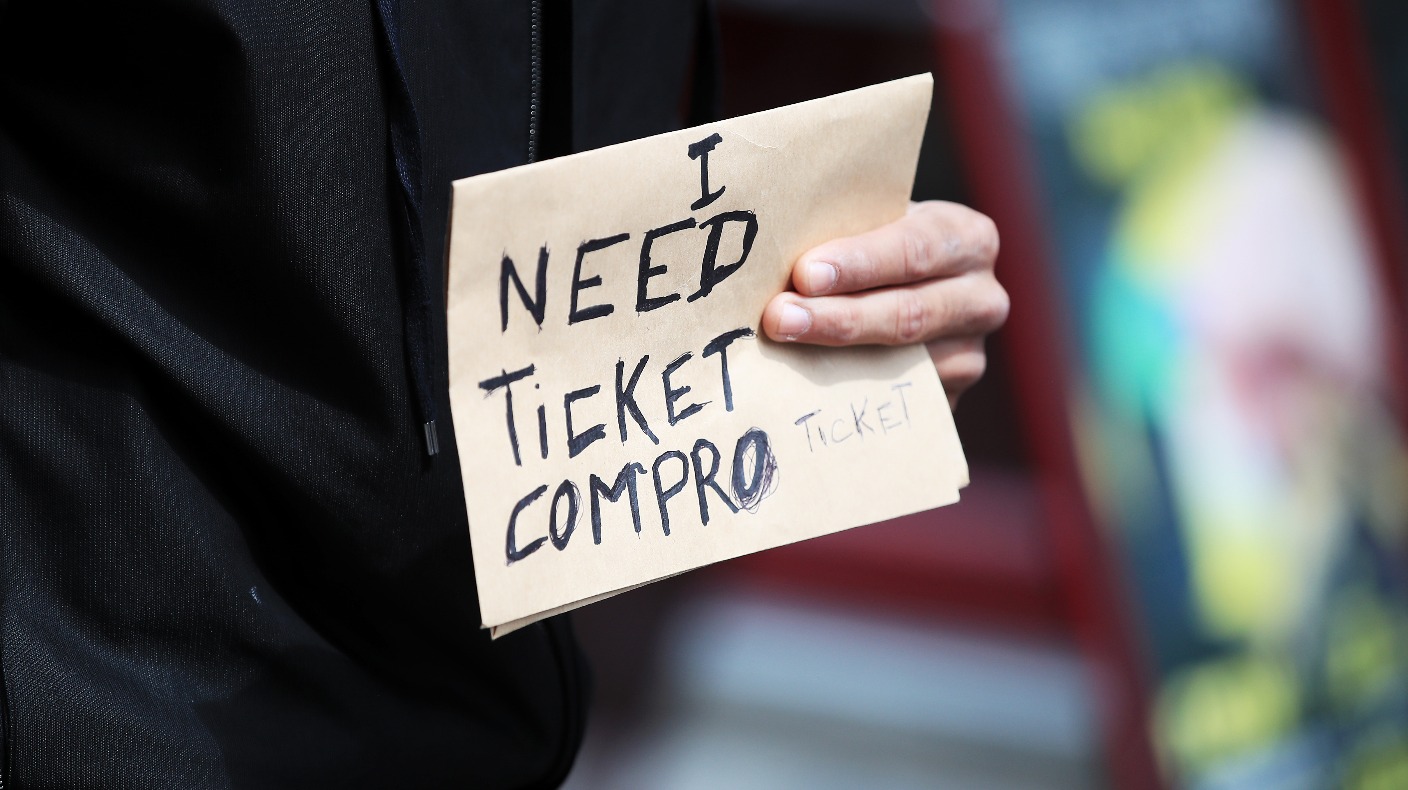 I
NEED
TiCKET
COMPRO TiCKET